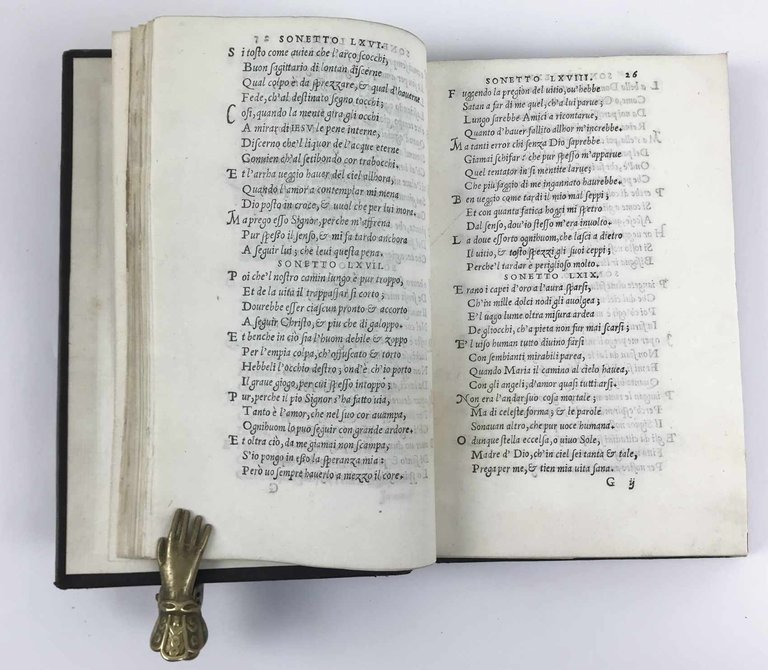 SONETTO LXVI.
Si tosto come auien che l'arco scocchi,
Buon sagittario di lontan discerne
Qual colpo è da sprezzare, & qual d'hauerne
Fede, ch'al destinato segno tocchi;
Cosi, quando la mente gira gli occhi
A mirar di IESV le pene interne,
Discerno che'l liquor de l'acque eterne
Conuien ch'al setibondo cor trabocchi.
Et l'arrha ueggio hauer del ciel allhora,
Quando l'amor a contemplar mi mena
Dio posto in croce, & uual che per lui mora.
Ma prego esso Signor, perche m'affrena
Pur spesso il senso, & mi fa tardo anchora
A seguir lui; che leui questa pena.
SONETTO LXVII.
Poi che'l nostro camin lungo è pur troppo,
Et de la uita il trappassar si corto;
Dourebbe esser ciascun pronto & accorto
A seguir Christo, & piu che di galoppo.
Et benche in ciò sia l'huom debile & zoppo
Per l'empia colpa, ch'offuscato & torto
Hebbeli l'occhio destro; ond'è ch'io porto
Il graue giogo, per cui spesso intoppo;
Pur, perche il pio Signor s'ha fatto uia,
Tanto è l'amor, che nel suo cor auampa,
Ognihuom lo può seguir con grande ardore.
Et oltra ciò, da me giamai non scampa,
S'io pongo in esso la speranza mia:
Però uo sempre hauerlo a mezzo il core.
SONETTO LXVIII. 26
Fuggendo la pregion del uitio, ou'hebbe
Satan a far di me quel, ch'a lui parue;
Lungo sarebbe Amici a ricontarue,
Quanto d'hauer fallito allhor m'increbbe.
Ma tanti error chi senza Dio saprebbe
Giamai schifar? che pur spesso m'apparue
Quel tentator in si mentite larue;
Che più saggio di me ingannato haurebbe.
Ben ueggio come tardi il mio mal seppi;
Et con quanta fatica hoggi mi spetro
Dal senso, dou'io stesso m'era inuolto.
La doue essorto ognihuom, che lasci a dietro
Il uitio, & tosto spezzi gli suoi ceppi;
Perche'l tardar è periglioso molto.
SONETTO LXIX.
Erano i capei d'oro a l'aura sparsi,
Ch'in mille dolci nodi gli auolgea;
E'l uago lume oltra misura ardea
De gliocchi, ch'a pieta non fur mai scarsi;
E'l uiso human tutto diuino farsi
Con sembianti mirabili parea,
Quando Maria il camino al cielo hauea,
Con gli angeli, d'amor quasi tutti arsi.
Non era l'andar suo cosa mortale;
Ma di celeste forma; & le parole
Sonauan altro, che pur uoce humana.
O dunque stella eccelsa, o uiuo Sole,
Madre d'Dio, ch'in ciel sei tanta & tale,
Prega per me, & tien mia uita sana.
G ij